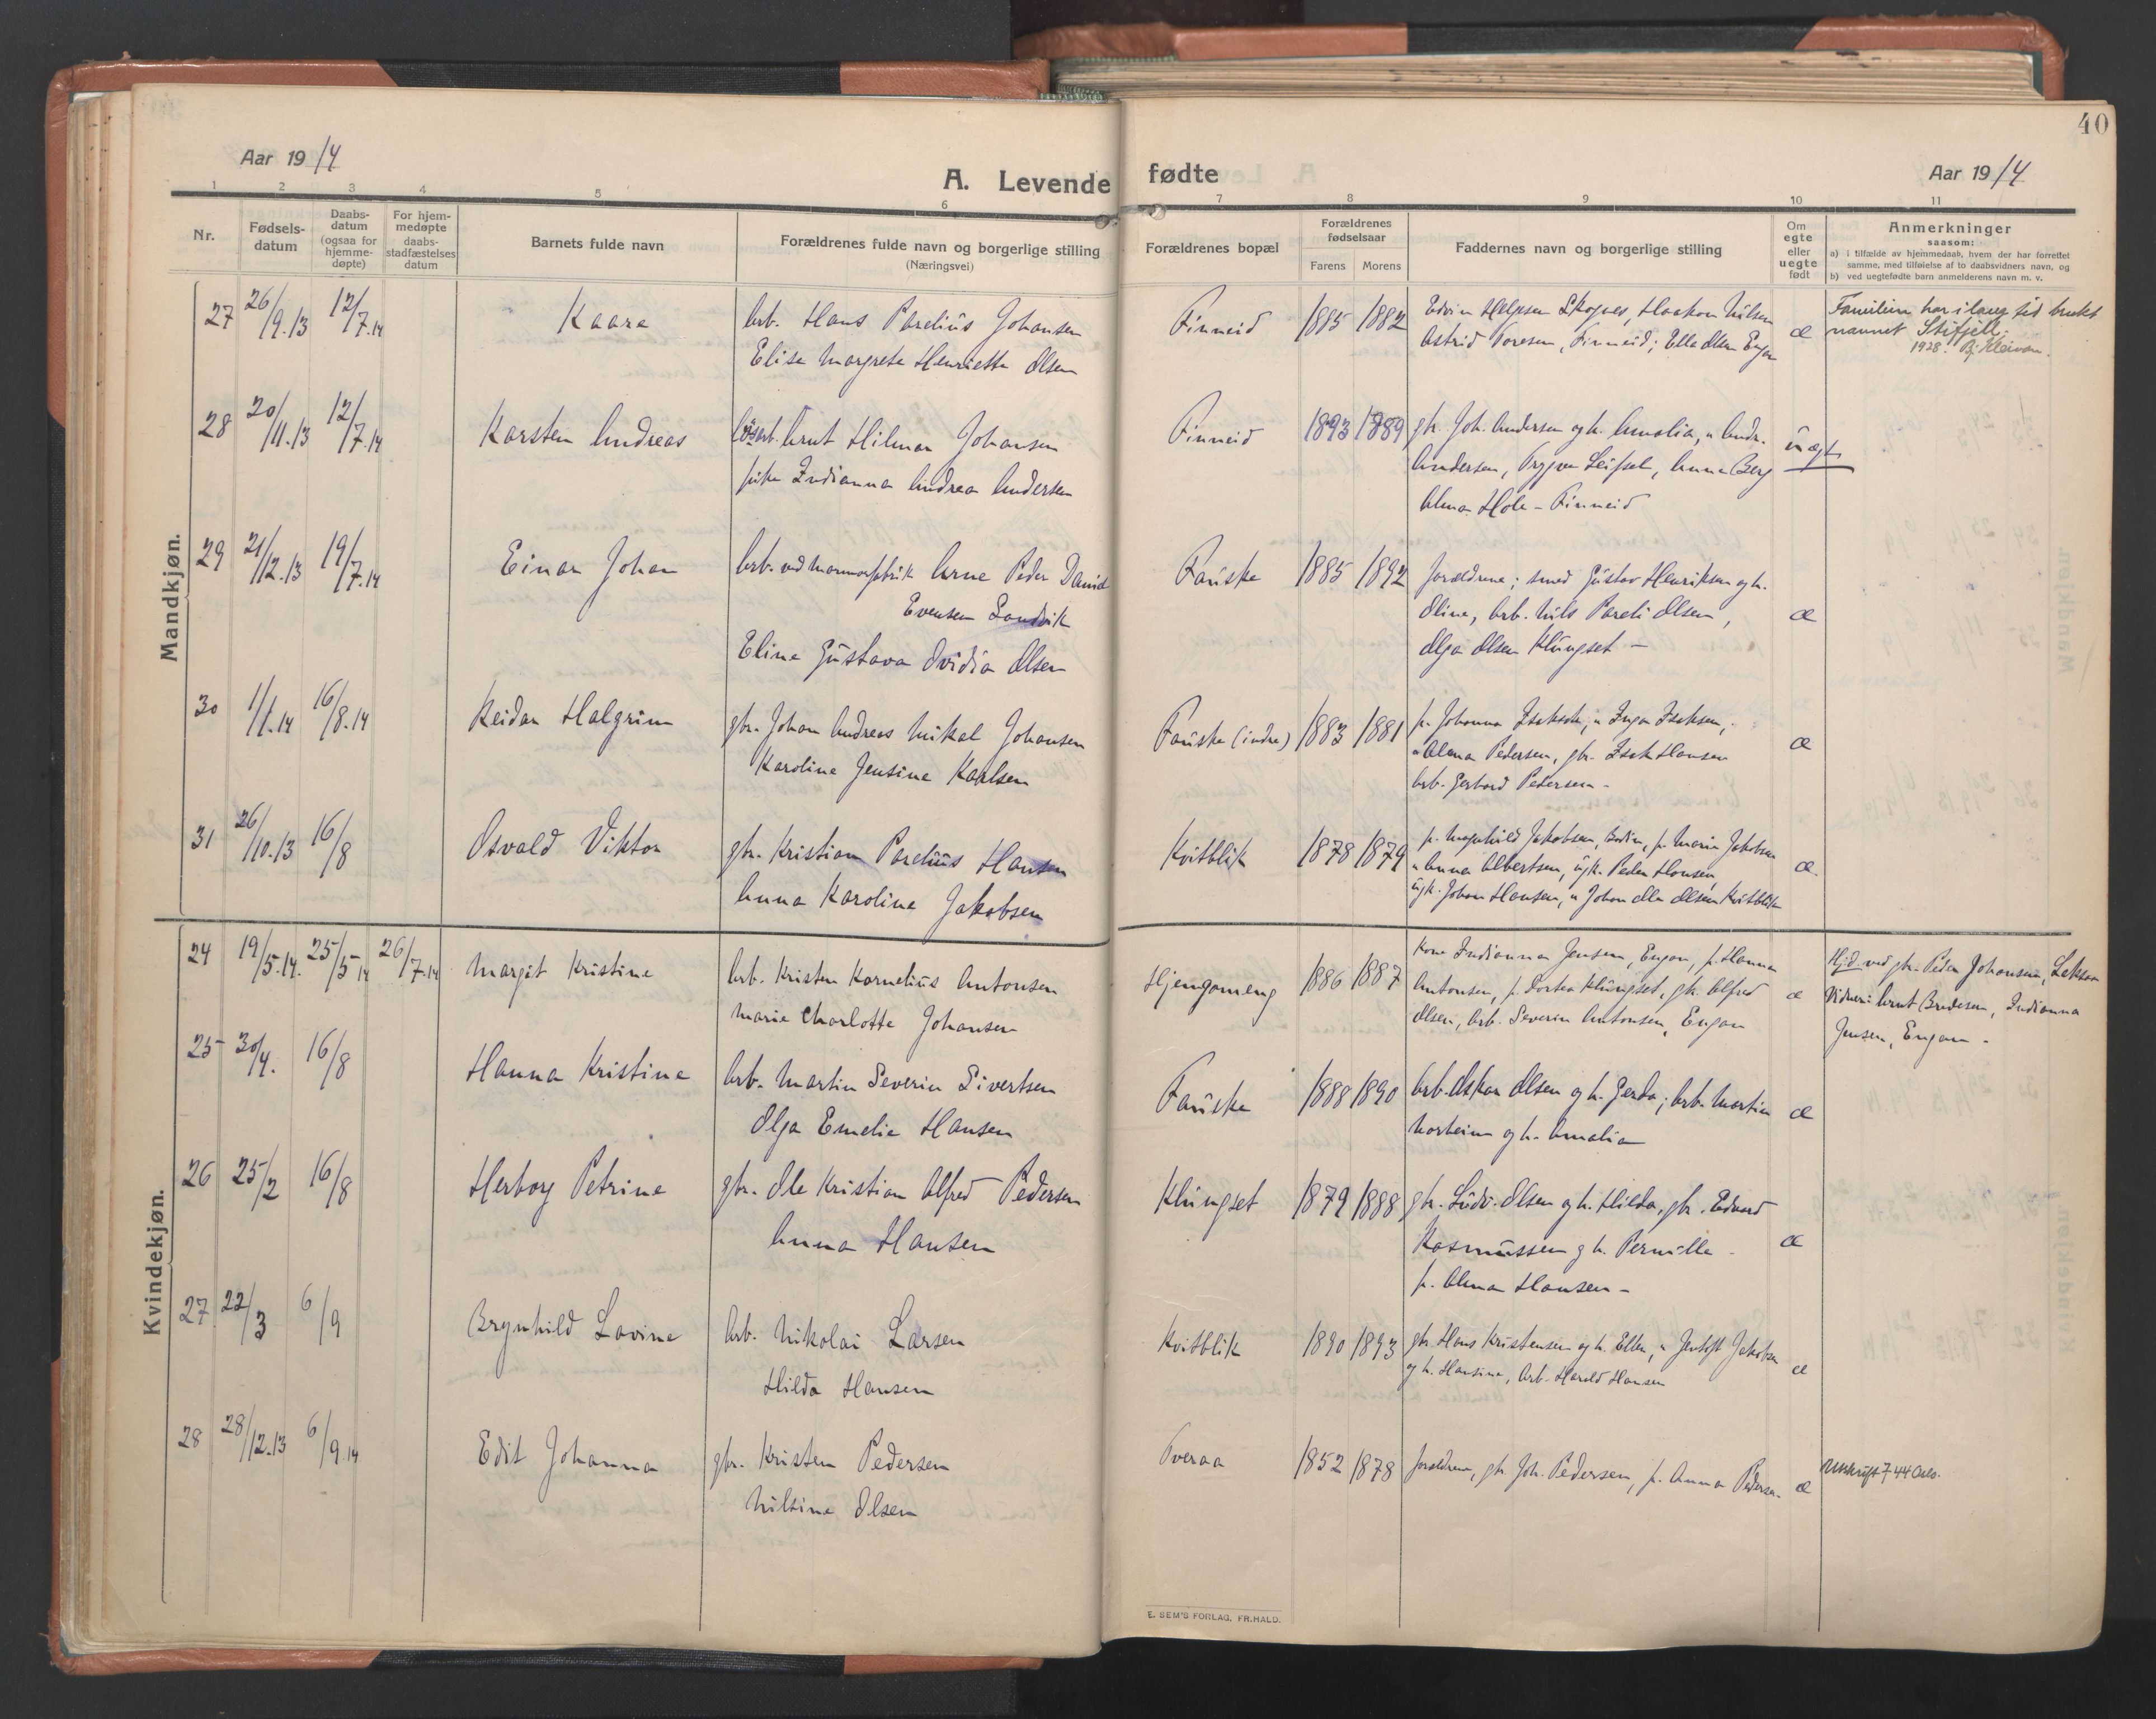 40
Aar 1914
A. Levende fødte
Aar 1914
1 2 3 4 5 6 7 8 9 10 11
Nr.
Fødsels-
datum
Daabs-
datum
(ogsaa for
hjemme-
døpte)
For hjem-
medøpte
daabs-
stadfæstelses
datum
Barnets fulde navn
Forældrenes fulde navn og borgerlige stilling
(Næringsvei)
Forældrenes bopæl
Forældrenes
fødselsaar
Farens Morens
Faddernes navn og borgerlige stilling
Om
egte
eller
uegte
født
Anmerkninger
saasom:
a) i tilfælde av hjemmedaab, hvem der har forrettet
samme, med tilføielse af to daabsvidners navn, og
b) ved uegtefødte barn anmelderens navn m. v.
Mandkjøn.
27 26/9.13 12/7.14 Kaare
Arb. Hans Parelius Johansen
Elise Margrete Henriette Olsen
Finneid 1885 1882
Edvin Helgesen Skognes, Haakon Nilsen
Astrid Toresen, Finneid; Elle Olsen Engan
æ
Familien har i lang tid brukt
navnet Stifjell.
1928. Bj. Kleivan.
28 20/11.13 12/7.14 Karsten Andreas
Løsarb. Arnt Hilmar Johansen
pike Indianna Andrea Andersen
Finneid 1893 1889
gbr. Joh. Andersen og h. Amalia, " Andr.
Andersen, Trygve Leifset, Anna Berg
Alma Hole - Finneid
uægt.
29 21/12.13 19/7.14 Einar Johan
Arb. ved marmorfabrik Arne Peder David
Evensen Sandvik
Eline Gustava Ovidia Olsen
Fauske 1885 1892
forældrene; smed Gustav Henriksen og h.
Oline, Arb. Nils Pareli Olsen,
Olga Olsen Klungset -
æ
30 1/1.14 16/8.14 Reidar Halgrim
gbr. Johan Andreas Mikal Johansen
Karoline Jensine Karlsen
Fauske (indre) 1883 1881
p. Johanna Isaksen; " Inga Isaksen,
" Alma Pedersen, gbr. Isak Hansen
arb. Gerhard Pedersen -
æ
31 26/10.13 16/8 Osvald Viktor
gbr. Kristian Parelius Hansen
Anna Karoline Jakobsen
Kvitblik 1878 1879
p. Magnhild Jakobsen, Bodin, p. Marie Jakobsen
" Anna Albertsen, ugk. Peder Hansen,
ugk. Johan Hansen, " Johan Ole Olsen Kvitblik
æ.
Kvindekjøn.
24 19/5.14. 25/5 14 26/7.14 Margit Kristine
Arb. Kristen Kornelius Antonsen
Marie Charlotte Johansen
Hjengameng 1886 1887
Kone Indianna Jensen, Engan, p. Hanna
Antonsen, p. Dortea Klungset, gk. Alfred
Olsen, Arb. Severin Antonsen, Engan
æ
Hj.d. ved gbr. Peder Johansen, Lakså
Vidner: Arnt Bredesen, Indianna
Jensen, Engan -
25 30/4. 16/8 Hanna Kristine
Arb. Martin Severin Sivertsen
Olga Emelie Hansen
Fauske 1888 1890
Arb. Oskar Olsen og h. Gerda; Arb. Martin
Norheim og h. Amalia
æ
26 25/2 16/8 Herborg Petrine
gbr. Ole Kristian Alfred Pedersen
Anna Hansen
Klungset 1879 1888
gbr. Ludv. Olsen og h. Hilda, gbr. Edvard
Rasmussen og h. Pernille -
p. Alma Hansen -
æ
27 22/3 6/9 Brynhild Lovine
Arb. Nikolai Larsen
Hilda Hansen
Kvitblik 1890 1893
gbr. Hans Kristensen og h. Ellen, " Jentoft Jakobsen
og h. Hansine, Arb. Harald Hansen
æ
28 28/12.13 6/9.14 Edit Johanna
gbr. Kristen Pedersen
Nilsine Olsen
Tveraa 1852 1878
forældrene, gbr. Joh. Pedersen, p. Anna Pedersen
æ
Utskrift 7 44 Oslo.
E. SEM'S FORLAG, FR.HALD.